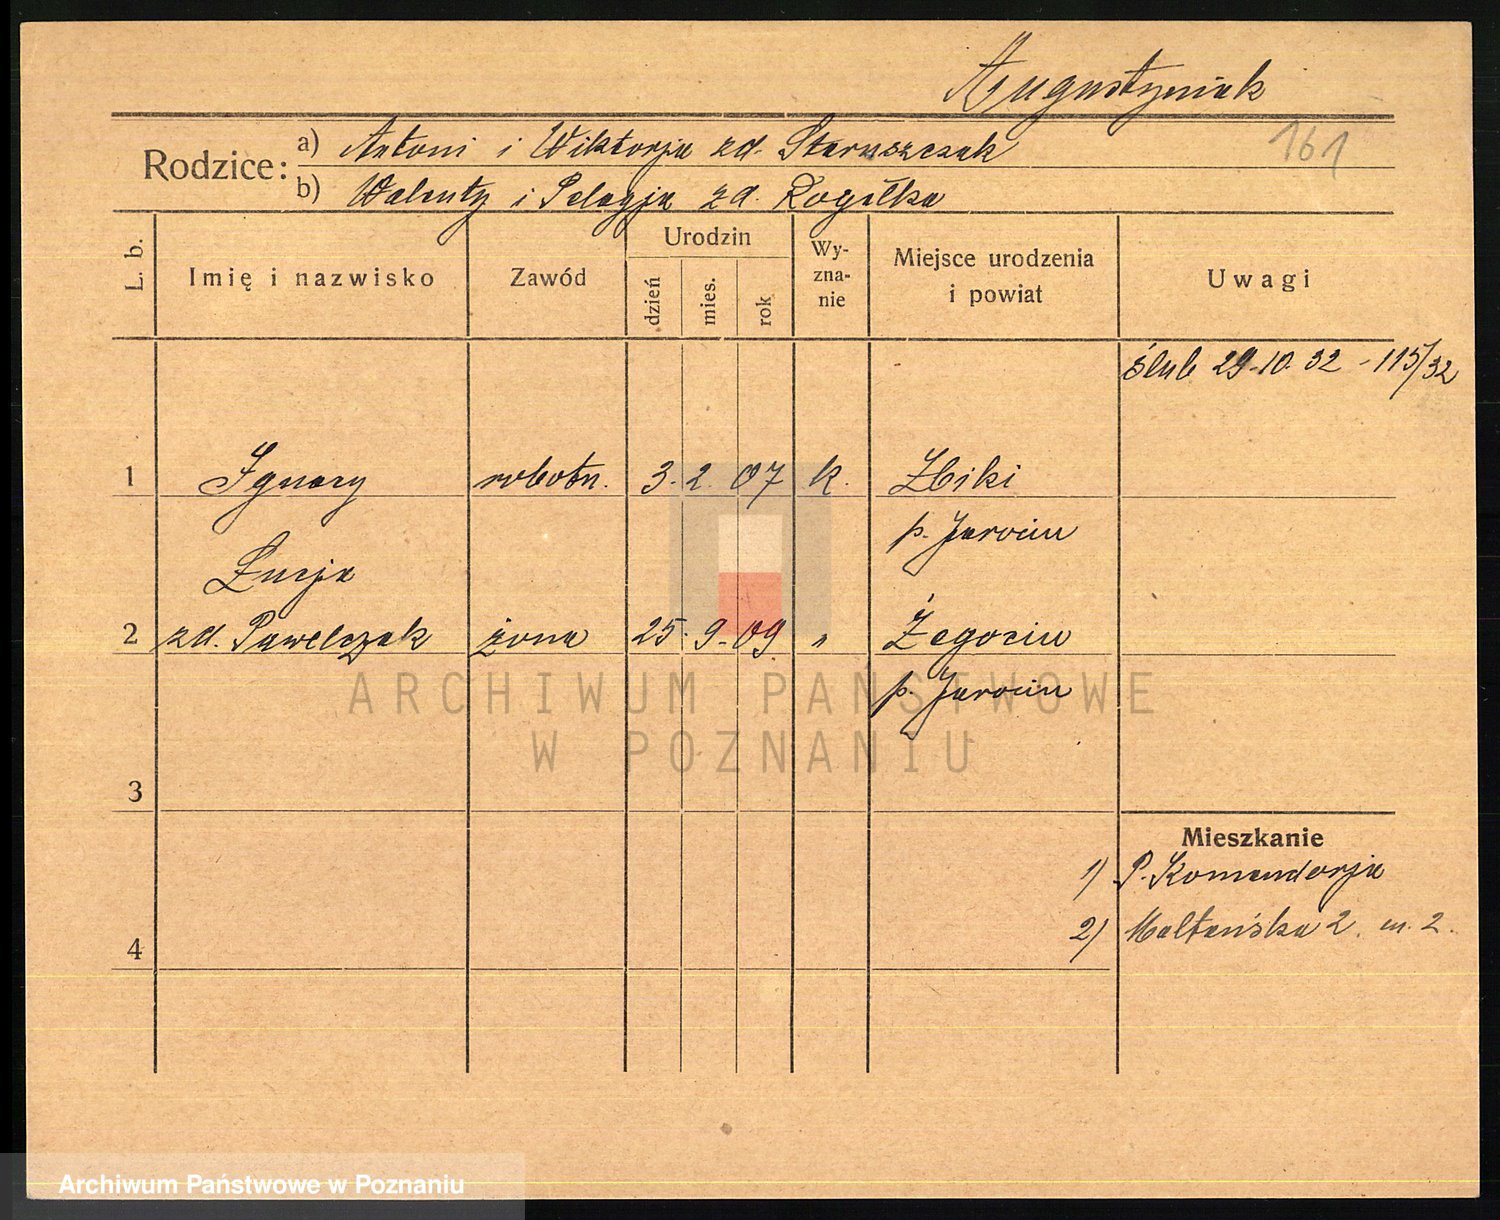 Augustyniak
161
Rodzice: a) Antoni i Wiktorja zd. Staruszczak
b) Walenty i Pelagja zd. Rogalka
L. b. Imię i nazwisko Zawód Urodzin dzień mies. rok Wy-zna-nie Miejsce urodzenia i powiat Uwagi
ślub 29.10.32 - 115/32
1 Ignacy robotn. 3. 2. 07 k. Żbiki
p. Jarocin
Łucja
2 zd. Pawelczak żona 25. 9. 09 " Żegocin
p. Jarocin
3
Mieszkanie
1) P. Komandorja
2) Maltańska 2. m. 2.
4
ARCHIWUM PAŃSTWOWE
W POZNANIU
Archiwum Państwowe w Poznaniu